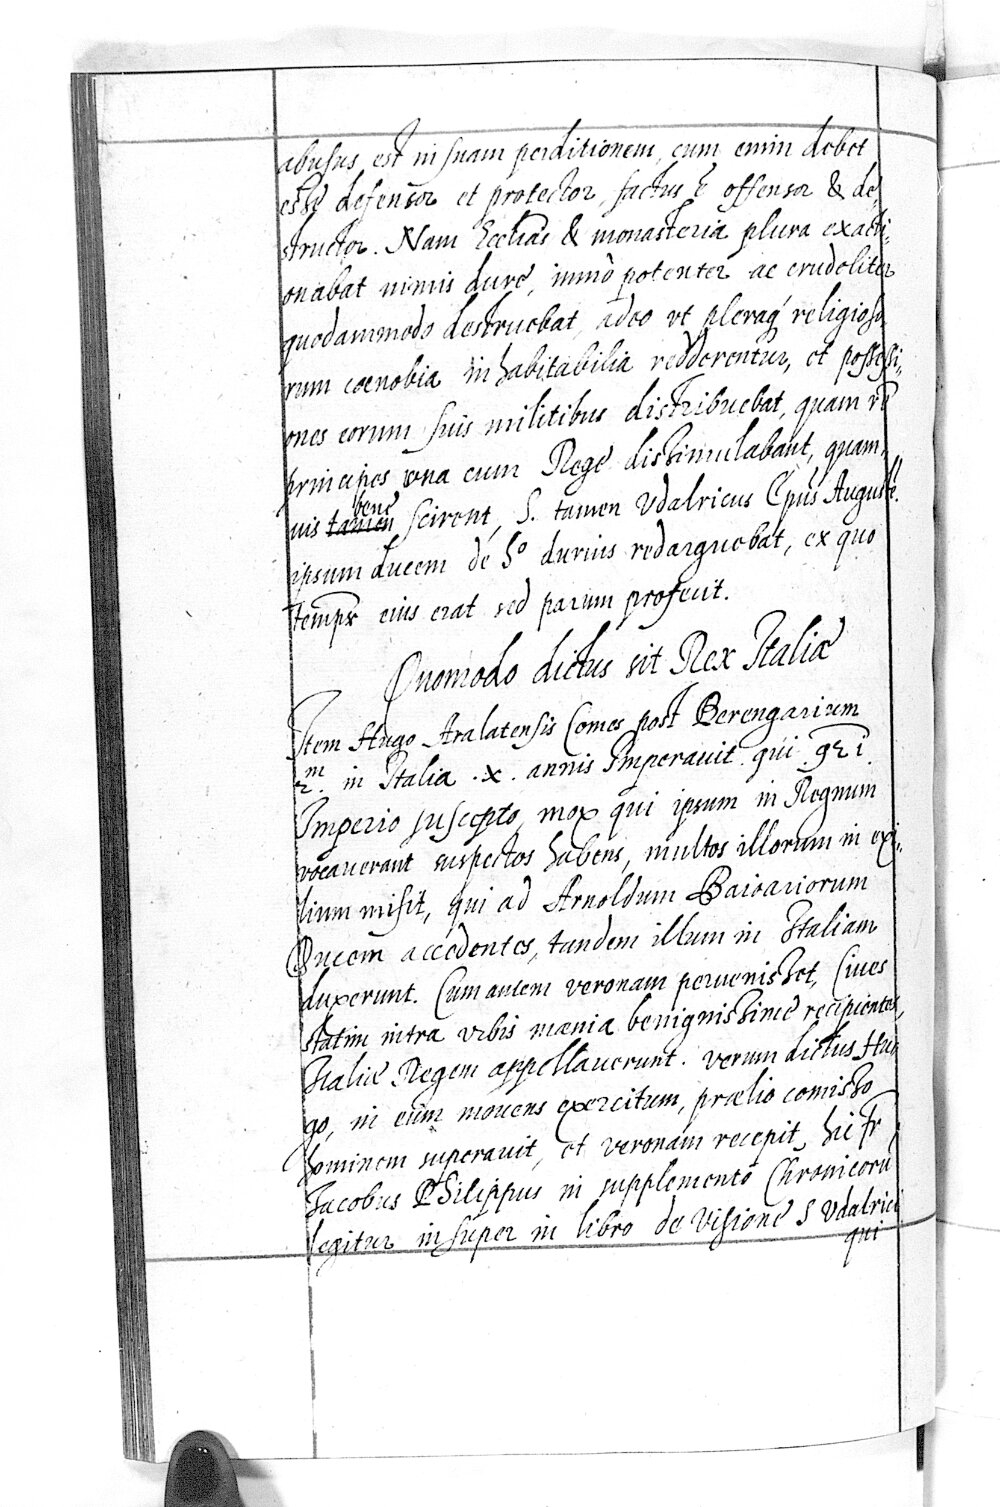 abusus est in suam perditionem, cum enim debet
esse defensor et protector, factus ē offensor & de,
structor. Nam Eccl̄ias & monasteria plura exacti,,
onabat nimis durè, immò potenter ac crudeliter
quodammodo destruebat, adeo vt pleraq́ religioso,
rum coenobia inhabitabilia redderentur, et possessi,,
ones eorum suis militibus distribuebat, quam rē
principes vna cum Rege dissimulabant, quam,,
uis tamen benè scirent, S. tamen Vdalricus Ep̄us Auguste.
ipsum ducem de hº durius redarguebat, ex quo
temp̄r eius erat sed parum profecit.
Quomodo dictus sit Rex Italiæ
Item Hugo Aralatensis Comes post Berengarium
2.m in Italia .x. annis Imperauit. qui
Imperio suscepto, mox qui ipsum in Regnum
vocauerant suspectos habens, multos illorum in exi,,
lium misit, qui ad Arnoldum Baioariorum
Ducem accedentes, tandem illum in Italiam
duxerunt. Cum autem veronam peruenisset, Ciues
statim intra vrbis mænia benignissimè recipientes,
Italiæ Regem appellauerunt. verum dictus Hu,
go, in eum mouens exercitum, prælio comisso
hominem superauit, et veronam recepit, hic Fr
Jacobus Philippus in supplemento Chronicorū
legitur insuper in libro de Visione S Vdalrici
qui